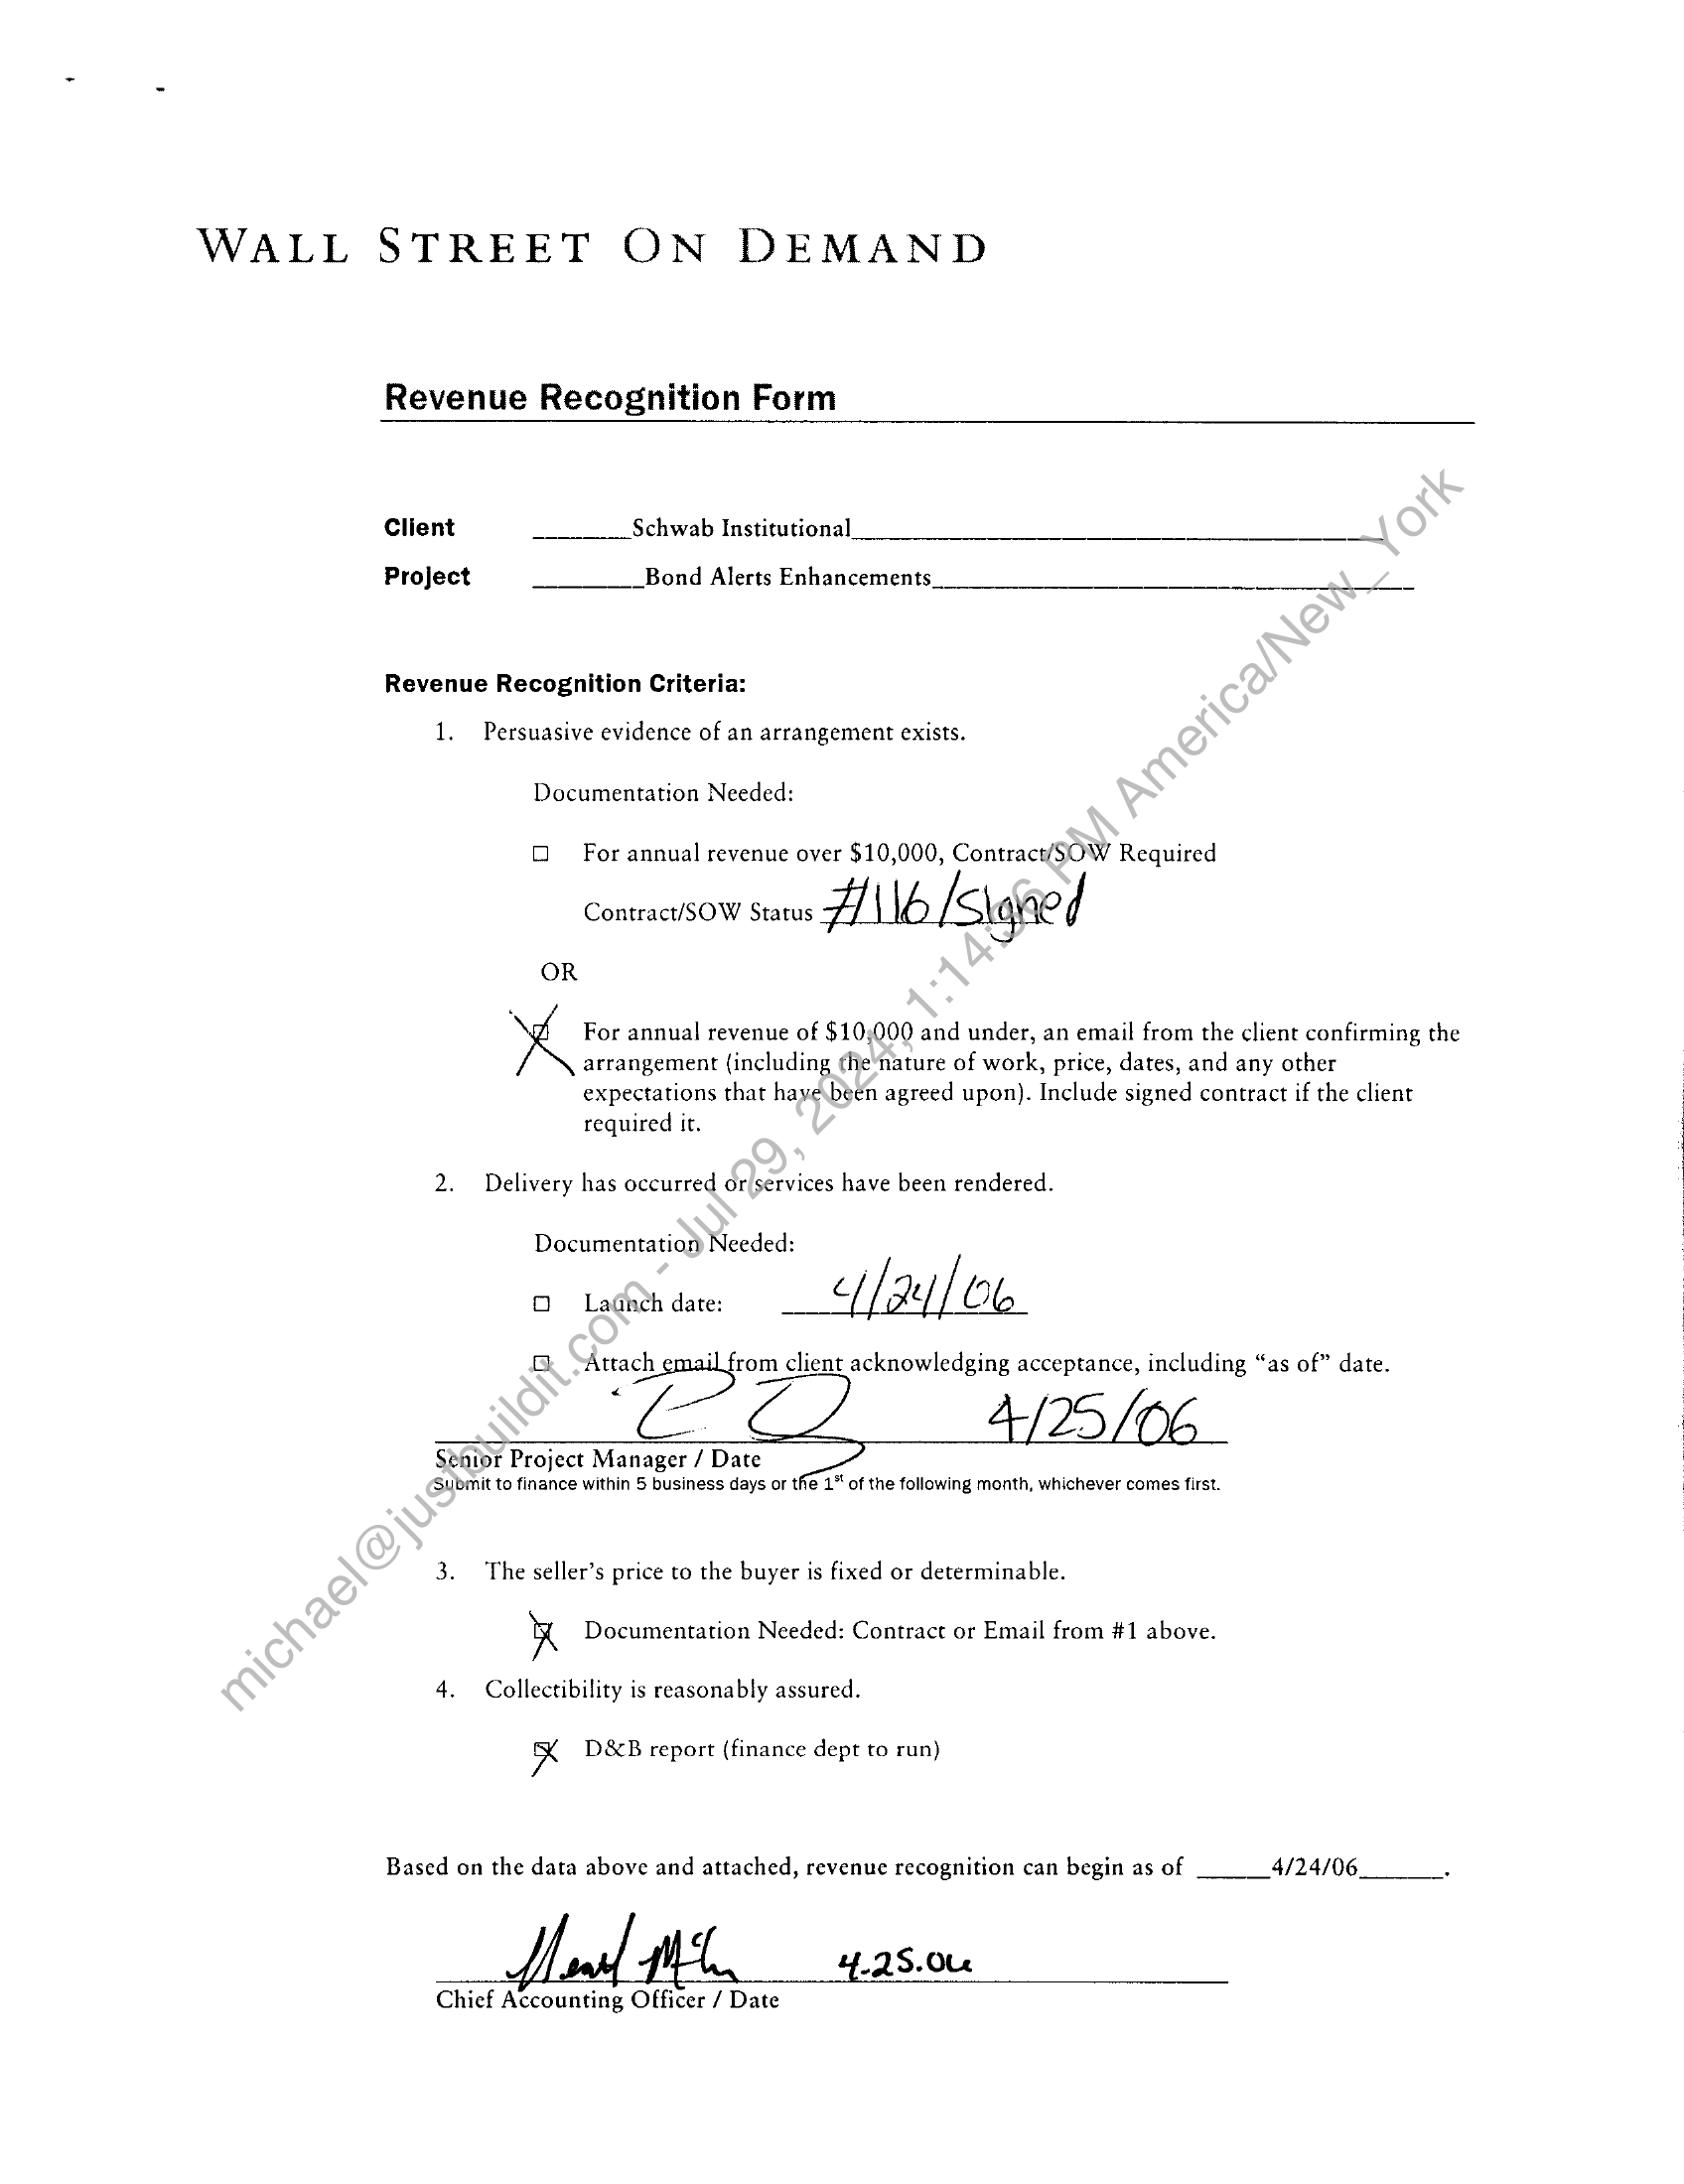 WALL STREET ON DEMAND
Revenue Recognition Form
Client Schwab Institutional
Project Bond Alerts Enhancements
Revenue Recognition Criteria:
1. Persuasive evidence of an arrangement exists.
Documentation Needed:
☐ For annual revenue over $10,000, Contract/SOW Required
Contract/SOW Status #116/Signed
OR
☒ For annual revenue of $10,000 and under, an email from the client confirming the
arrangement (including the nature of work, price, dates, and any other
expectations that have been agreed upon). Include signed contract if the client
required it.
2. Delivery has occurred or services have been rendered.
Documentation Needed:
☐ Launch date: 4/24/06
☐ Attach email from client acknowledging acceptance, including “as of” date.
4/25/06
Senior Project Manager / Date
Submit to finance within 5 business days or the 1st of the following month, whichever comes first.
3. The seller’s price to the buyer is fixed or determinable.
☒ Documentation Needed: Contract or Email from #1 above.
4. Collectibility is reasonably assured.
☒ D&B report (finance dept to run)
Based on the data above and attached, revenue recognition can begin as of 4/24/06.
4.25.06
Chief Accounting Officer / Date
michael@justbuildit.com - Jul 29, 2024, 1:14:36 PM America/New_York